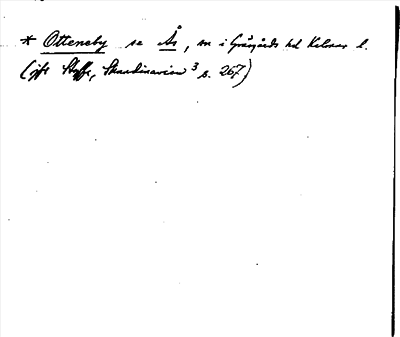 * Otteneby se Ås, sn i Gräsgårds hd Kalmar l.
(jfr Styffe, Skandinavien 3 s. 267)